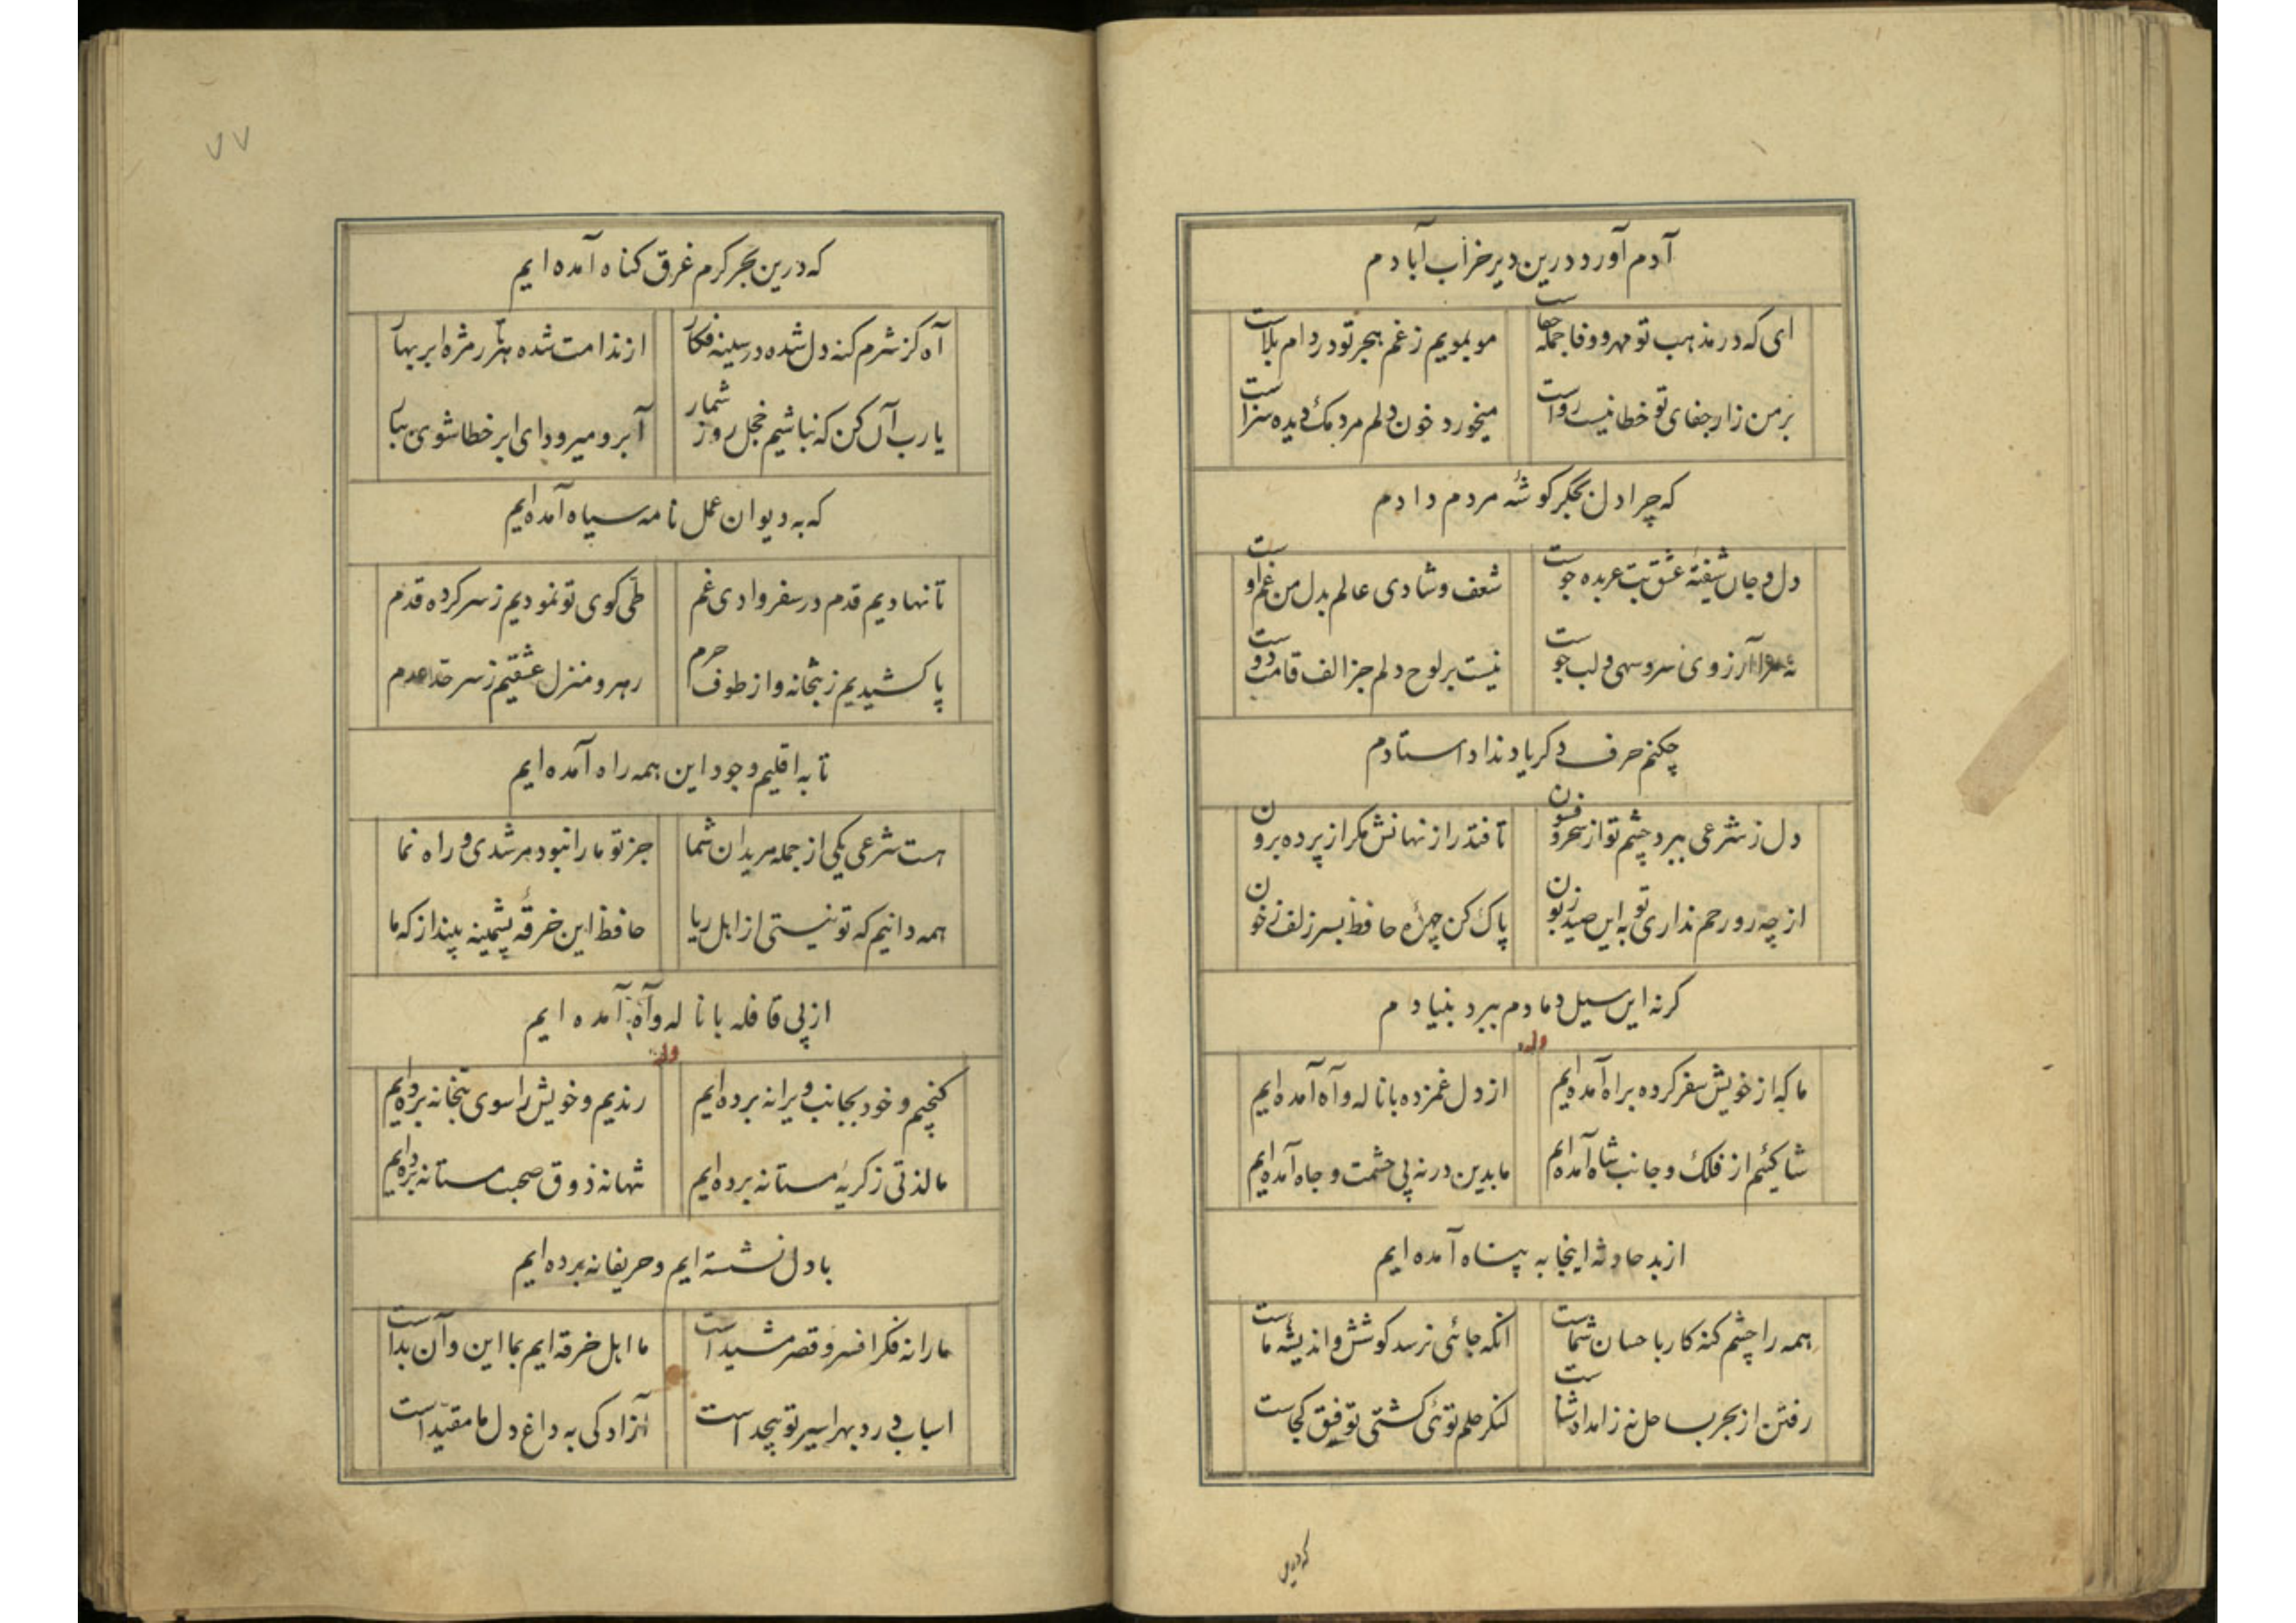 آدم آورد درین دیر خراب آبادم
ای که در مذهب تو مهر و وفا جمله جفاست موبمویم ز غم هجر تو در دام بلاست
بر من زار جفای تو خطا نیست رواست میخورد خون دلم مردمک دیده سزاست
که چرا دل بجگر کوشهٔ مردم دادم
دل و جان شیفتهٔ عشق بت عربده جوست شعف و شادی عالم بدل من غم اوست
نه مرا آرزوی سرو سهی و لب جوست نیست بر لوح دلم جز الف قامت دوست
چکنم حرف دکر یاد نداد استادم
دل ز شرعی ببرد چشم تو از سحر و فسون تا فتد راز نهانش مکر از پرده برون
از چه رو رحم نداری تو به این صید زبون پاک کن چهرهٔ حافظ بسر زلف ز خون
کرنه این سیل دمادم ببرد بنیادم
وله
ما که از خویش سفر کرده براه آمده‌ایم از دل غمزده با ناله و آه آمده‌ایم
شاکئیم از فلک و جانب شاه آمده‌ایم ما بدین در نه پی حشمت و جاه آمده‌ایم
از بد حادثه اینجا به پناه آمده ایم
همه را چشم کنه کار با حسان شماست آنکه جائی نرسد کوشش و اندیشه ماست
رفتن از بحر بساحل نه ز امداد شناست لنکر حلم توئی کشتی توفیق کجاست
که درین
۷۷
که درین بحر کرم غرق کناه آمده ایم
آه کز شرم کنه دل شده در سینه فکار از ندامت شده هر مژه ابر بهار
یا رب آن کن که نباشیم خجل روز شمار آبرو میرود ای ابر خطا شوی ببار
که به دیوان عمل نامه سیاه آمده‌ایم
تا نهادیم قدم در سفر وادی غم طی کوی تو نمودیم ز سر کرده قدم
پا کشیدیم ز بتخانه و از طوف حرم رهرو منزل عشقیم ز سر حد عدم
تا به اقلیم وجود این همه راه آمده ایم
هست شرعی یکی از جمله مریدان شما جز تو ما را نبود مرشدی و راه نما
همه دانیم که تو نیستی از اهل ریا حافظ این خرقهٔ پشمینه بینداز که ما
از پی قافله با ناله و آه آمده ایم
وله
کنجیم و خود بجانب ویرانه برده‌ایم رندیم و خویش را سوی بتخانه برده‌ایم
ما لذتی ز کریهٔ مستانه برده‌ایم شهانه ذوق صحبت مستانه برده‌ایم
با دل نشسته ایم و حریفانه برده ایم
ما را نه فکر افسر و قصر مشید است ما اهل خرقه ایم بما این و آن بد است
اسباب درد بهر اسیر تو بیحد است آزادکی به داغ دل ما مقید است